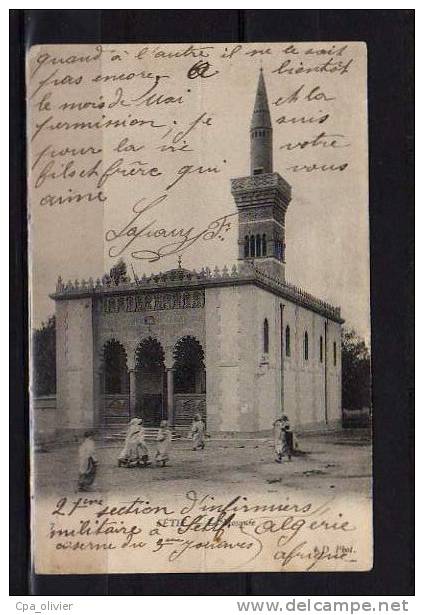 quand à l'autre il ne le sait
pas encore. A bientôt
le mois de Mai et la
permission, je suis
pour la vie votre
fils et frère qui vous
aime
SÉTIF Mosquée
21ème section d'infirmiers
militaire à Sétif Algérie
caserne du 3ème zouaves
afrique
Phot.
cpa_olivier
http://www.delcampe.net